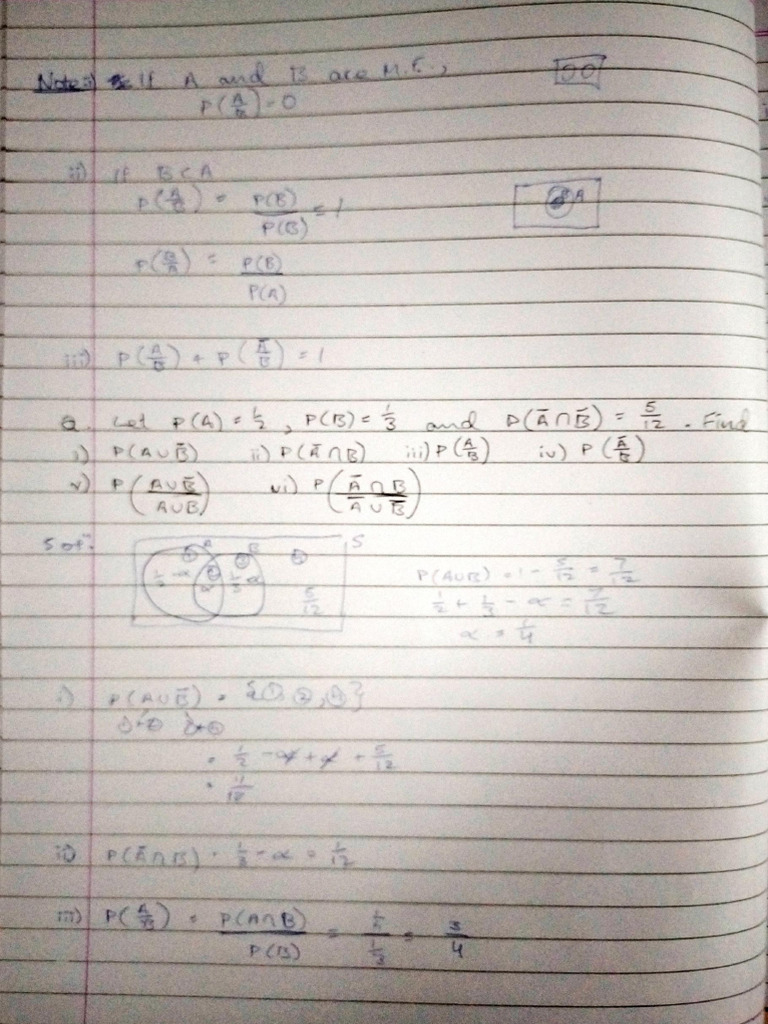 Note: i) If A and B are M.E.,
P(A/B) = 0
ii) If B ⊂ A
P(A/B) = P(B)/P(B) = 1
P(B/A) = P(B)/P(A)
iii) P(A/B) + P(Ā/B) = 1
Q. Let P(A) = 1/2, P(B) = 1/3 and P(Ā ∩ B̄) = 5/12. Find
i) P(A ∪ B̄) ii) P(Ā ∩ B) iii) P(A/B) iv) P(Ā/B)
v) P((A ∪ B̄)/(A ∪ B)) vi) P((Ā ∩ B)/(Ā ∪ B̄))
Solⁿ.
A B S
① ② ③ ④
1/2 - α α 1/3 - α 5/12
P(A ∪ B) = 1 - 5/12 = 7/12
1/2 + 1/3 - α = 7/12
α = 1/4
i) P(A ∪ B̄) = {①, ②, ④}
= 1/2 - α + α + 5/12
= 11/12
ii) P(Ā ∩ B) = 1/3 - α = 1/12
iii) P(A/B) = P(A ∩ B)/P(B) = (1/4)/(1/3) = 3/4